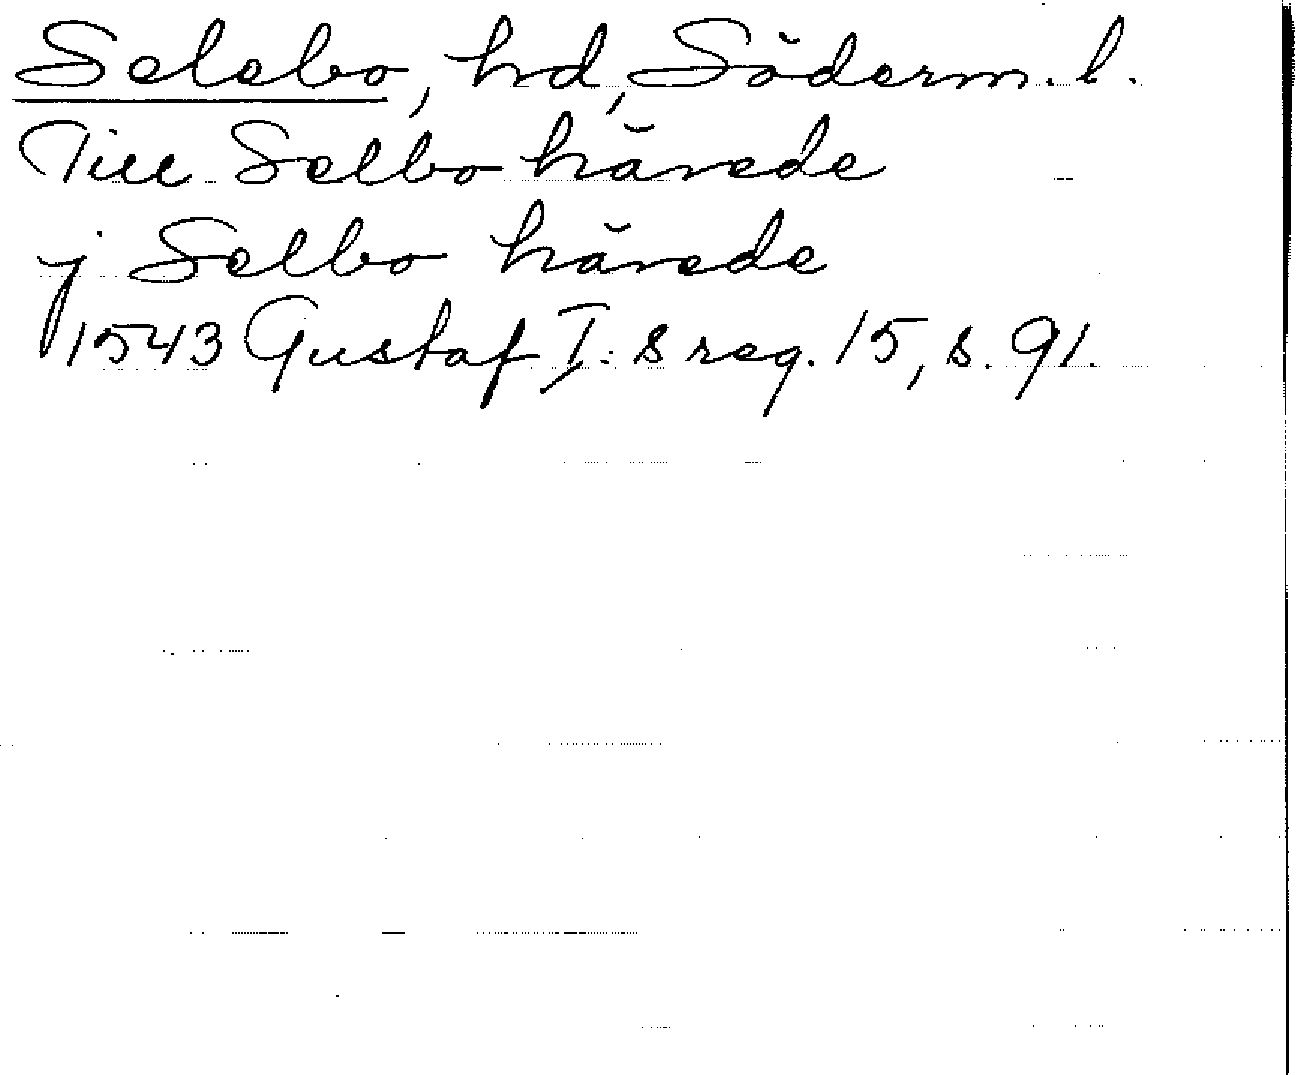 Selebo, hd, Söderm. l.
Till Selbo härede
j Selbo härede
1543 Gustaf I:s reg. 15, s. 91.